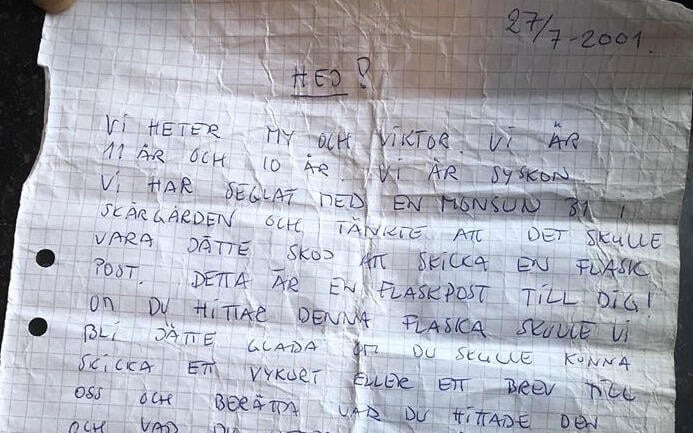 27/7-2001.
HEJ!
VI HETER MY OCH VIKTOR. VI ÄR
11 ÅR OCH 10 ÅR. VI ÄR SYSKON.
VI HAR SEGLAT MED EN MONSUN 31 I
SKÄRGÅRDEN OCH TÄNKTE ATT DET SKULLE
VARA JÄTTE SKOJ ATT SKICKA EN FLASK
POST. DETTA ÄR EN FLASKPOST TILL DIG!
OM DU HITTAR DENNA FLASKA SKULLE VI
BLI JÄTTE GLADA OM DU SKULLE KUNNA
SKICKA ETT VYKORT ELLER ETT BREV TILL
OSS OCH BERÄTTA VAR DU HITTADE DEN
OCH VAD DU